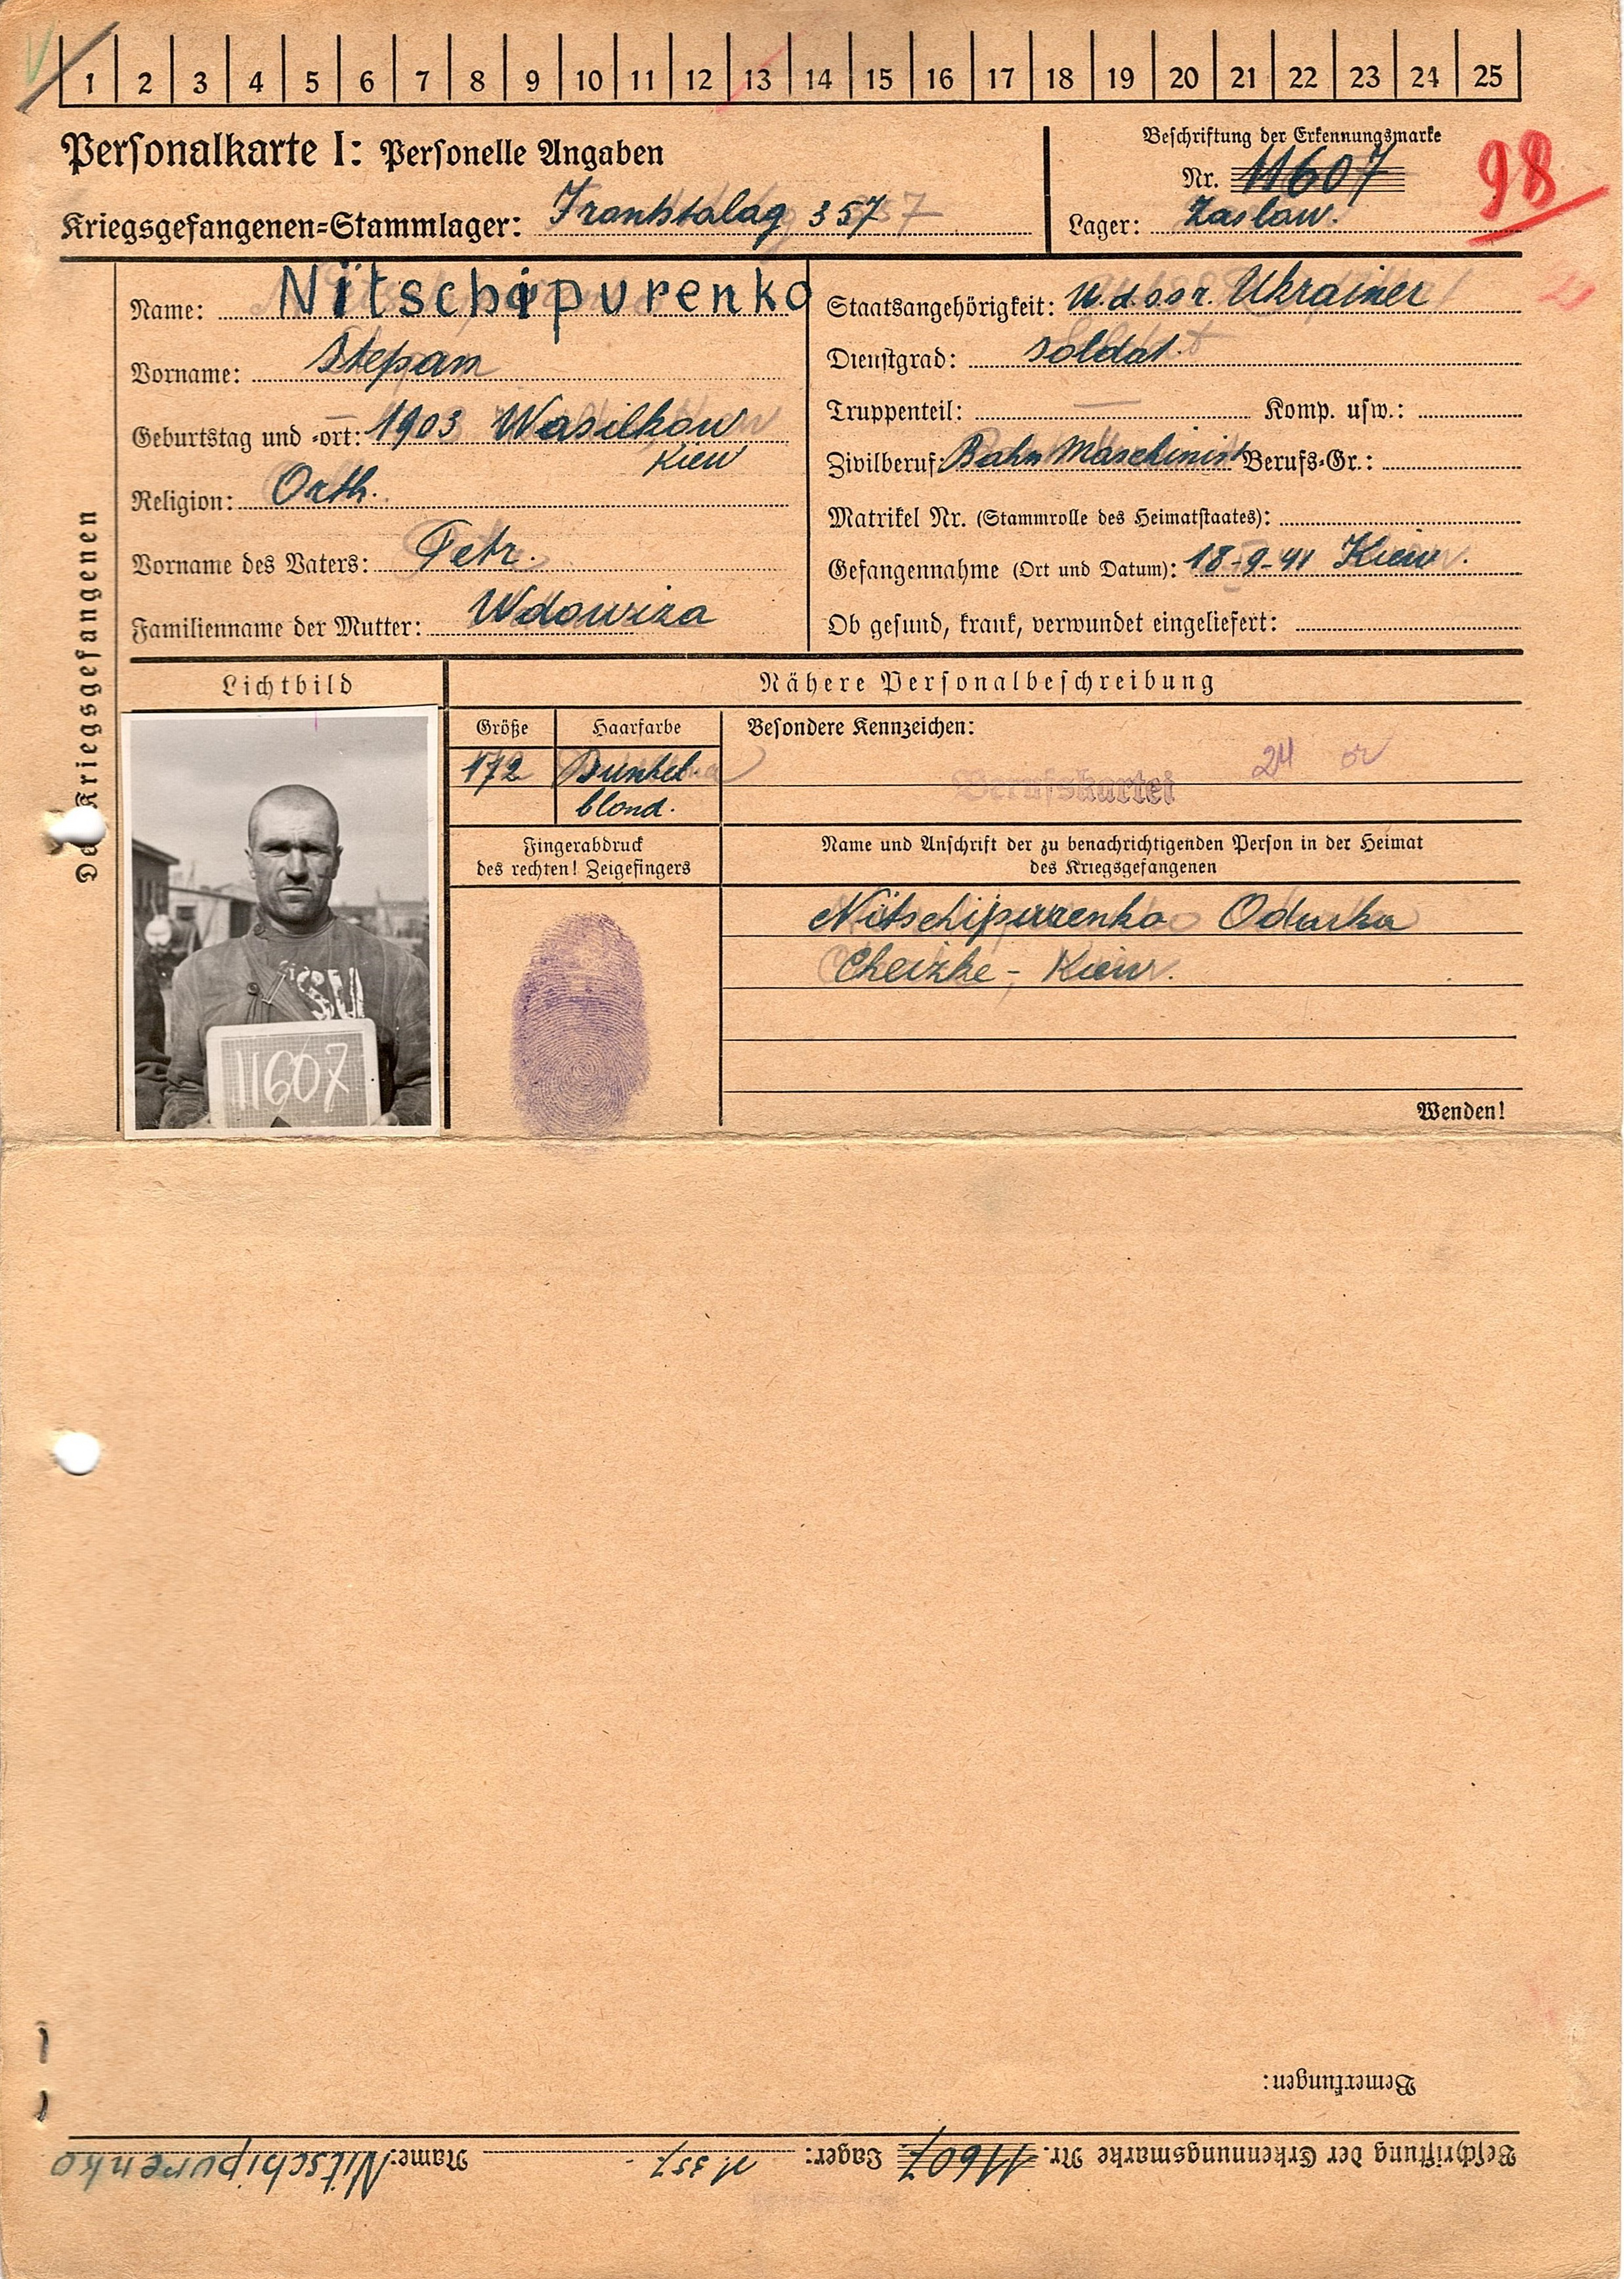 1 2 3 4 5 6 7 8 9 10 11 12 13 14 15 16 17 18 19 20 21 22 23 24 25
Personalkarte I: Personelle Angaben
Kriegsgefangenen=Stammlager: 357
Beschriftung der Erkennungsmarke
Nr. 11607
Lager: Zaslaw.
98
Des Kriegsgefangenen
Name: Nitschipurenko
Vorname: Stepan
Geburtstag und =ort: 1903 Wasilkow
Kiew
Religion: Orth.
Vorname des Vaters: Petr.
Familienname der Mutter:
Staatsangehörigkeit: U.d.s.s.r. Ukrainer
Dienstgrad: Soldat.
Truppenteil: — Komp. usw.:
Zivilberuf: Bahn Maschinist Berufs=Gr.:
Matrikel Nr. (Stammrolle des Heimatstaates):
Gefangennahme (Ort und Datum): 18-9-41 Kiew.
Ob gesund, krank, verwundet eingeliefert:
Lichtbild
SU
11607
Nähere Personalbeschreibung
Größe
172
Haarfarbe
Dunkel
blond.
Besondere Kennzeichen:
24
Berufskartei
Fingerabdruck
des rechten! Zeigefingers
Name und Anschrift der zu benachrichtigenden Person in der Heimat
des Kriegsgefangenen
Nitschipurenko Odarka
Kiew.
Wenden!
Bemerkungen:
Beschriftung der Erkennungsmarke Nr. 11607 Lager: 357 Name: Nitschipurenko